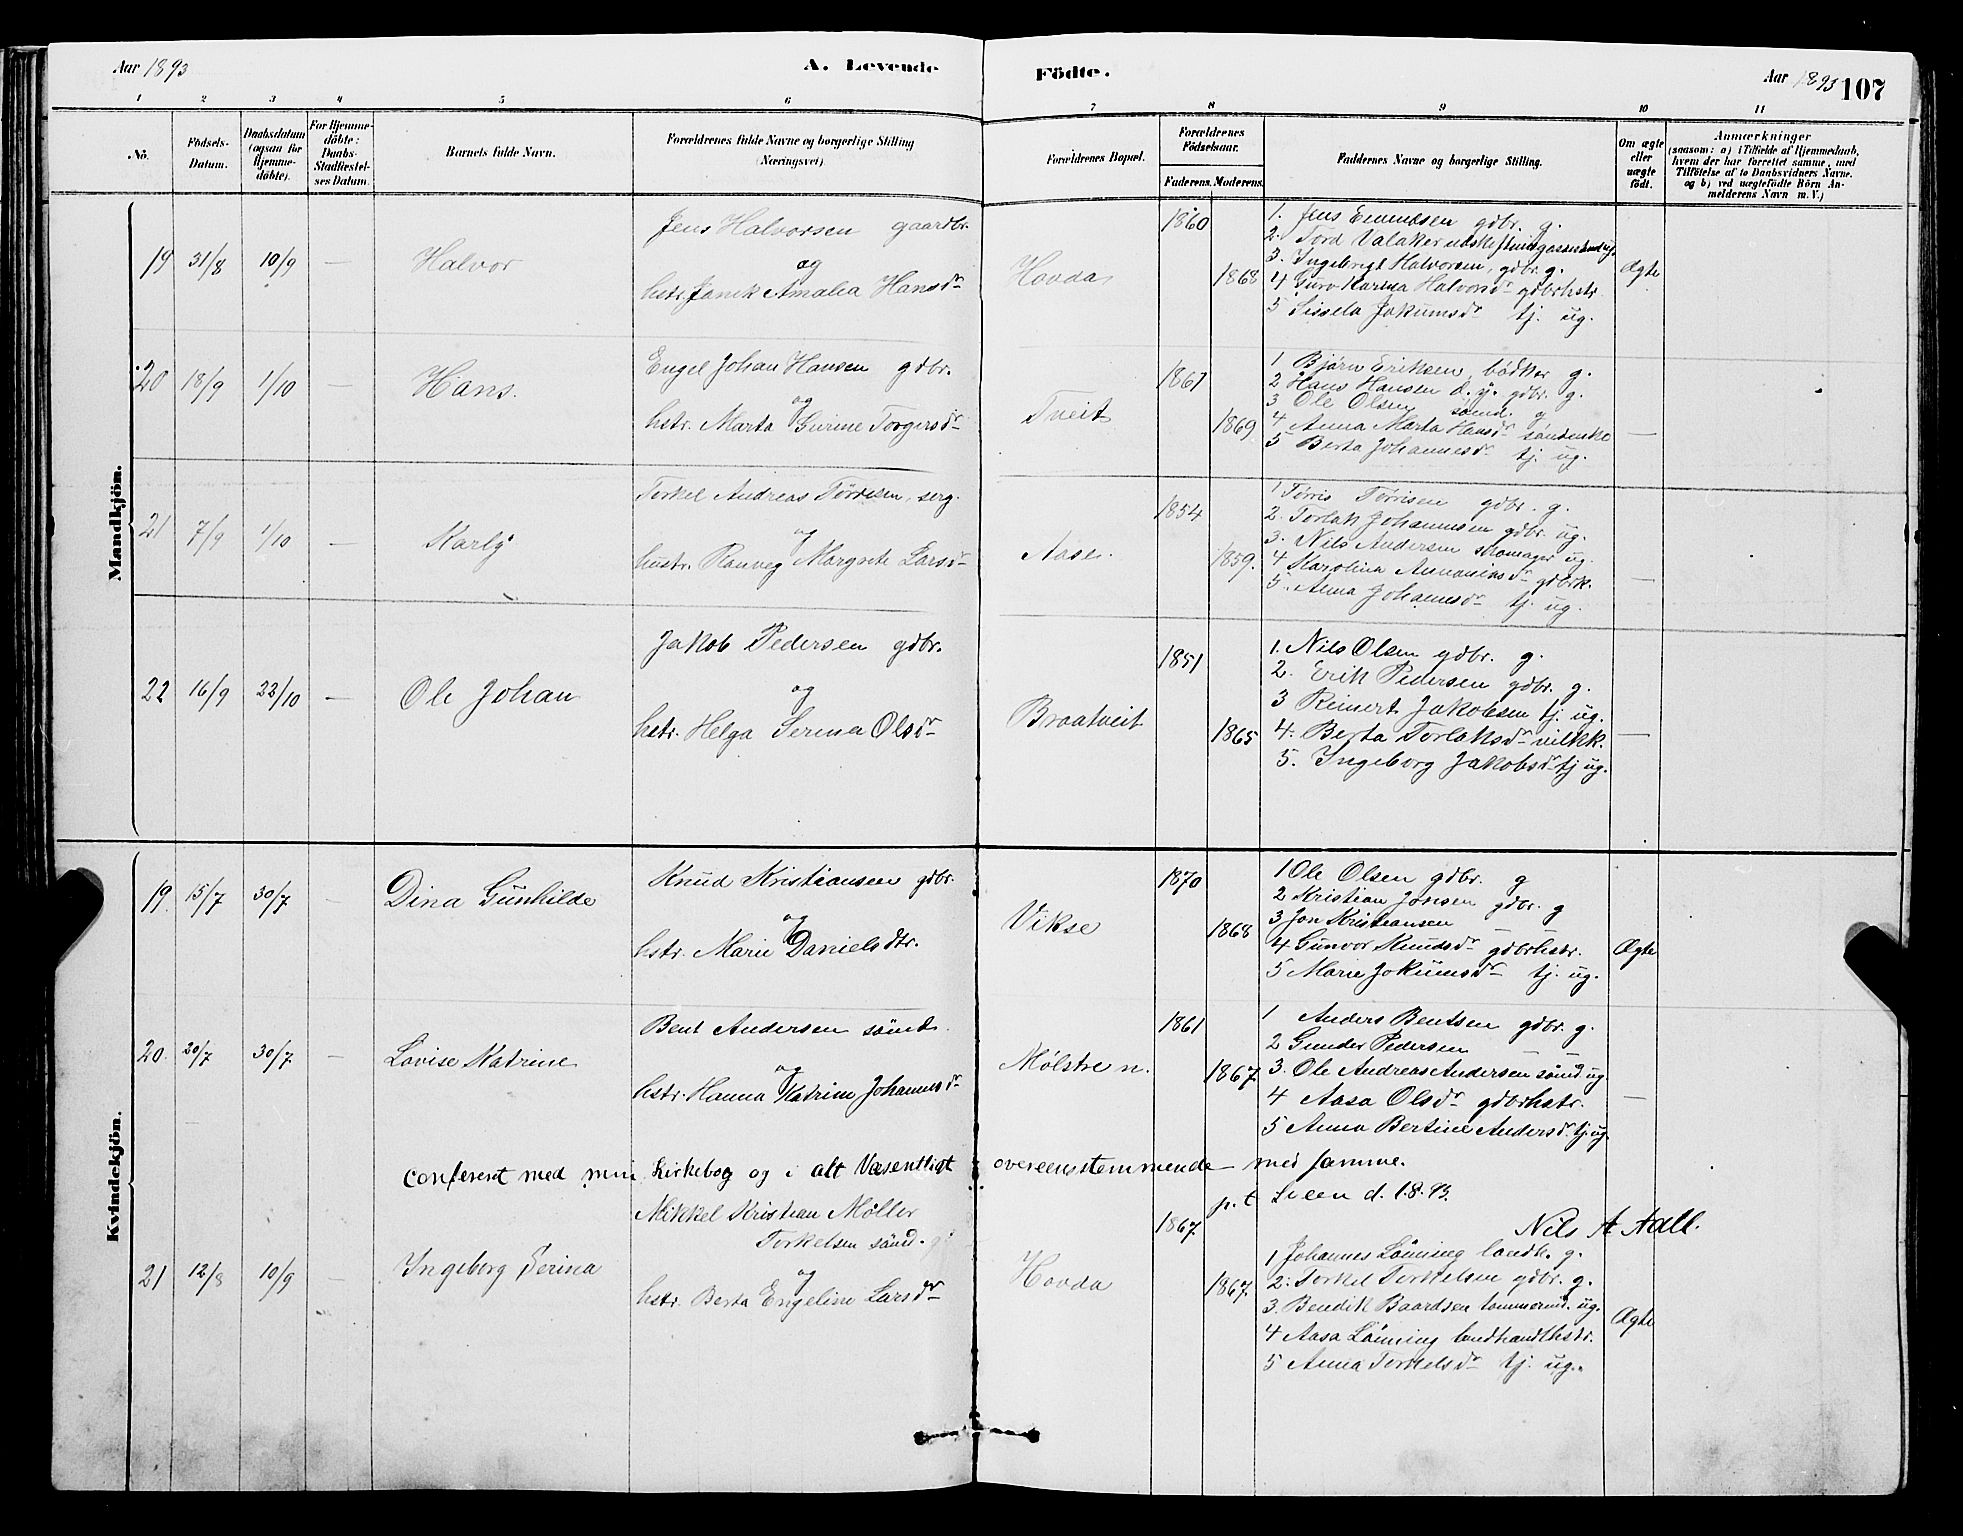 Aar 1893
A. Levende
Födte.
Aar 1893
107
1 2 3 4 5 6 7 8 9 10 11
No.
Födsels-
Datum.
Daabsdatum
(ogsaa for
Hjemme-
döbte).
For Hjemme-
döbte:
Daabs-
Stadfæstel-
ses Datum.
Barnets fulde Navn.
Forældrenes fulde Navne og borgerlige Stilling
(Næringsvei).
Forældrenes Bopæl.
Forældrenes
Födselsaar.
Faderens. Moderens.
Faddernes Navne og borgerlige Stilling.
Om ægte
eller
uægte
födt.
Anmærkninger
(saasom: a) i Tilfælde af Hjemmedaab,
hvem der har forrettet samme, med
Tilföielse af to Daabsvidners Navne.
og b) ved uægtefödte Börn An-
melderens Navn m.V.)
Mandkjön.
19 31/8 10/9 — Halvor
Jens Halvorsen gaardbr.
og
hstr. Janik Amalia Hansdr
Hovda
1860
1868
1. Jens Enundsen gdbr. g.
2. Tord Valaker
3. Ingebrigt Halvorsen, gdbr. g.
4 Guro Karina Halvorsdr gdbrhstr.
5 Sissela Jokumsdr tj. ug.
Ægte
20 18/9 1/10 — Hans.
Engel Johan Hansen gdbr.
og
hstr. Marta Gurine Torgersdr
Tveit
1867
1869
1 Bjørn Eriksen, bødker g.
2 Hans Hansen d. y. gdbr. g.
3 Ole Olsen sømd. g
4 Anna Marta Hansdr
5 Berta Johannesdr tj. ug.
—
21 7/9 1/10 — Karly
Torkel Andreas Tørresen, serg.
og
hustr. Ranveg Margrete Larsdr
Aase.
1854
1859.
1 Tørris Tørrisen gdbr. g.
2. Torlak Johannesen gdbr. ug.
3. Nils Andersen skomager ug.
4 Karolina Annaniasdr gdbrk.
5. Anna Johannesdr tj. ug.
—
22 16/9 22/10 — Ole Johan
Jakob Pedersen gdbr.
og
hstr. Helga Serina Olsdr
Braatveit
1851
1865
1. Nils Olsen gdbr. g.
2. Erik Pedersen gdbr. g.
3 Reinert Jakobsen tj. ug.
4. Berta Torlaksdr vilkk.
5. Ingeborg Jakobsdr tj ug.
—
Kvindekjön.
19. 15/7 30/7 — Dina Gunhilde
Knud Kristiansen gdbr.
og
hstr. Marie Danielsdtr.
Vikse
1870
1868
1 Ole Olsen gdbr. g
2 Kristian Jonsen gdbr. g
3 Jon Kristiansen — —
4 Gunvor Knudsdr gdbrhstr.
5 Marie Jokumsdr tj. ug.
Ægte
20. 20/7 30/7 — Lovise Katrine
Bent Andersen sömd.
og
hstr. Hanna Katrine Johannesdr
Mølstre n.
1861
1867
1 Anders Bentsen gdbr. g.
2 Gunder Pedersen — —
3. Ole Andreas Andersen sömd. ug.
4 Aasa Olsdr gdbrhstr.
5 Anna Bertine Andersdr tj. ug.
—
Confereret med min Kirkebog og i alt Væsentligt overeensstemmende med samme.
p. t Lieen d. 1.8.93.
Nils A Aall.
21 12/8 10/9 — Ingeborg Serina
Mikkel Kristian Møller
Torkelsen sömd. g
og
hstr. Berta Engeline Larsdr
Hovda
1867.
1867.
1 Johannes Lönning landh. g.
2. Torkel Torkelsen gdbr. g.
3. Bendik Baardsen tømmermd. ug.
4 Aasa Lönning landhandlhstr.
5 Anna Torkelsdr tj. ug.
Ægte